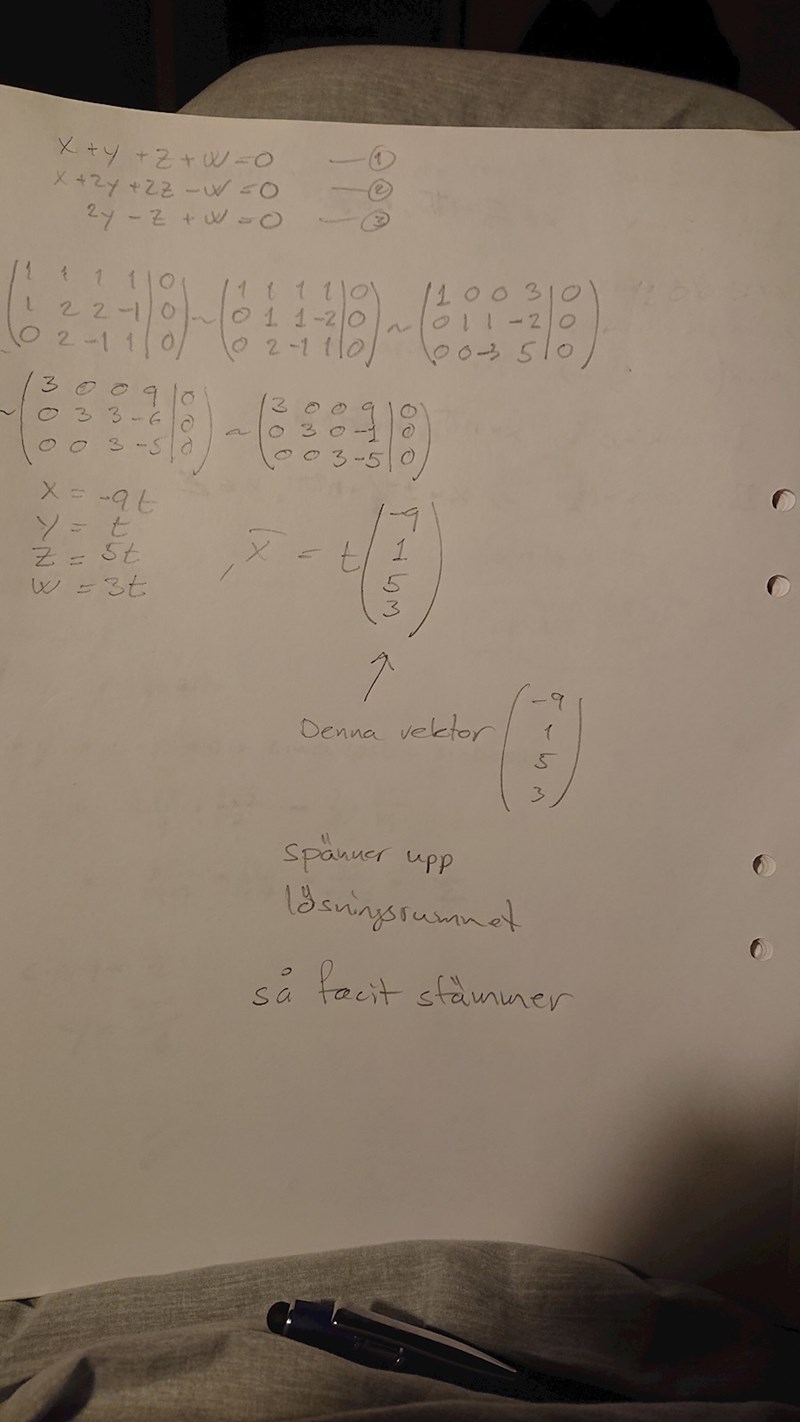 x + y + z + w = 0 — ①
x + 2y + 2z - w = 0 — ②
2y - z + w = 0 — ③
(1 1 1 1 | 0) (1 1 1 1 | 0) (1 0 0 3 | 0)
(1 2 2 -1 | 0) ~ (0 1 1 -2 | 0) ~ (0 1 1 -2 | 0)
~ (0 2 -1 1 | 0) (0 2 -1 1 | 0) (0 0 -3 5 | 0)
(3 0 0 9 | 0) (3 0 0 9 | 0)
~ (0 3 3 -6 | 0) ~ (0 3 0 -1 | 0)
(0 0 3 -5 | 0) (0 0 3 -5 | 0)
x = -9t
y = t
z = 5t
w = 3t
, x̄ = t (-9
1
5
3)
↑
Denna vektor (-9
1
5
3)
spänner upp
lösningsrummet
så facit stämmer